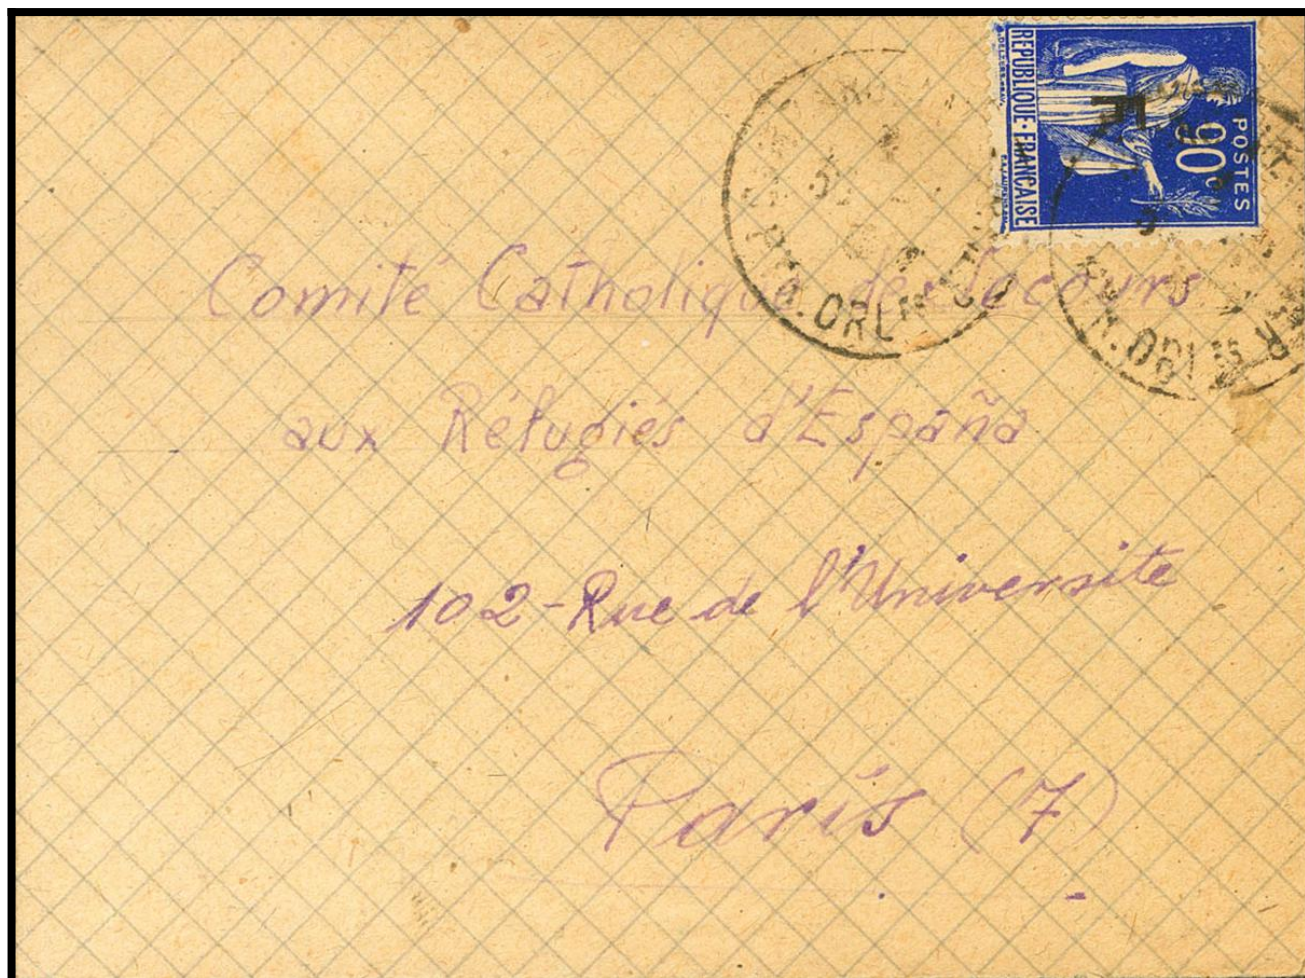 RÉPUBLIQUE · FRANÇAISE
POSTES
90c
F
Comité Catholique des Secours
aux Réfugiés d'España
102-Rue de l'Universite
París (7)